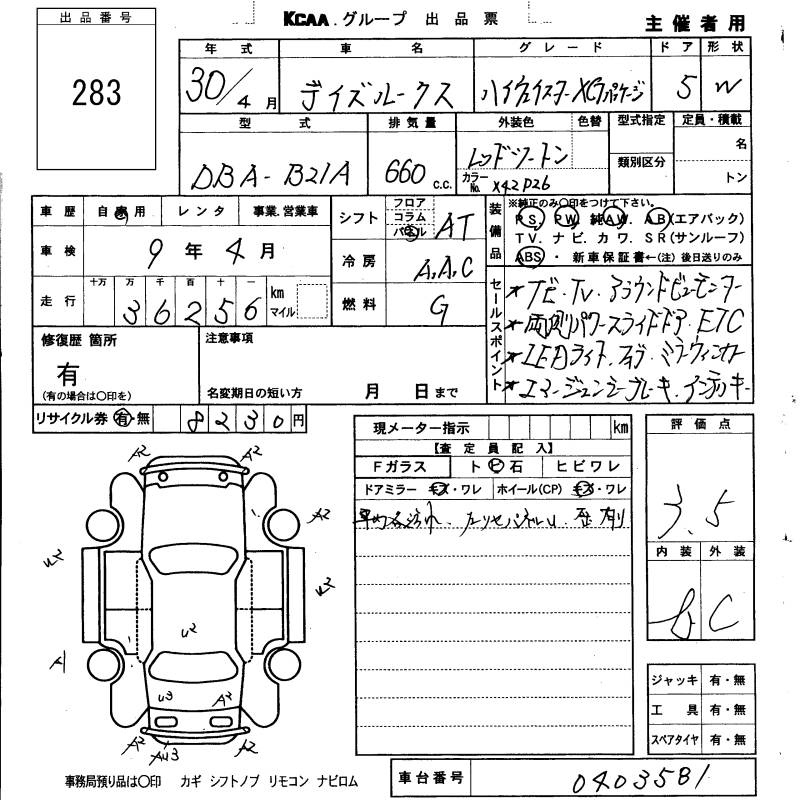 出品番号
283
KCAA.グループ 出品票
主催者用
年式 車名 グレード ドア 形状
30/4月 デイズルークス ハイウェイスターXGパッケージ 5 W
型式 排気量 外装色 色替 型式指定 定員・積載
DBA-B21A 660 c.c. レッドツートン 類別区分 名
カラーNo. X42P26 トン
車歴 自家用 レンタ 事業.営業車
車検 9年4月
走行 十万 万 千 百 十 一
36256 km マイル
シフト フロア コラム パネル AT
冷房 A.A.C
燃料 G
装備品 ※純正のみ〇印をつけて下さい。
P.S. P.W. 純A.W. A.B(エアバック)
TV. ナビ. カワ. SR(サンルーフ)
ABS ・ 新車保証書←(注)後日送りのみ
セールスポイント
★ナビ・TV・アラウンドビューモニター
★両側パワースライドドア・ETC
★LEDライト・ミラーウィンカー
★エマージェンシーブレーキ・インテリキー
修復歴 箇所
有
(有の場合は〇印を)
注意事項
名変期日の短い方 月 日まで
リサイクル券 有・無 8230円
現メーター指示 km
【査定員記入】
Fガラス ト ビ 石 ヒビワレ
ドアミラー キズ・ワレ ホイール(CP) キズ・ワレ
評価点
3.5
内装 外装
B C
ジャッキ 有・無
工具 有・無
スペアタイヤ 有・無
A2 A2
A2
U2 U2
U2
A
U3 A2
A2 AU3 A2
事務局預り品は〇印 カギ シフトノブ リモコン ナビロム
車台番号 0403581